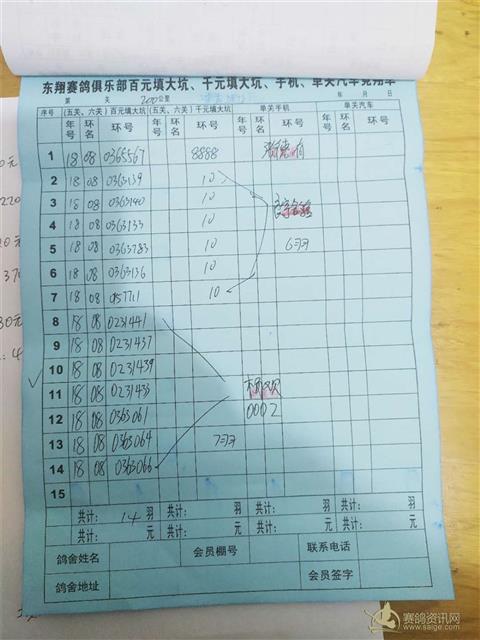 东翔赛鸽俱乐部百元填大坑、千元填大坑、手机、单关汽车竞翔单
第 关 200公里 年 月 日
序号 (五关、六关)百元填大坑 (五关、六关)千元填大坑 单关手机 单关汽车
年号 环名 环号 年号 环名 环号 年号 环名 环号 年号 环名 环号
1 18 08 0365567 8888
2 18 08 0363139 10
3 18 08 0363140 10
4 18 08 0363133 10
5 18 08 0363783 10 6羽
6 18 08 0363136 10
7 18 08 10
8 18 08 0231441
9 18 08 0231437
10 18 08 0231439
11 18 08 0231435
12 18 08 0363061 0002
13 18 08 0363064 7羽
14 18 08 0363066
15
共计: 14 羽 共计: 羽 共计: 羽 共计: 羽
共计: 元 共计: 元 共计: 元 共计: 元
鸽舍姓名 会员棚号 联系电话
鸽舍地址 会员签字
赛鸽资讯网
www.saige.com